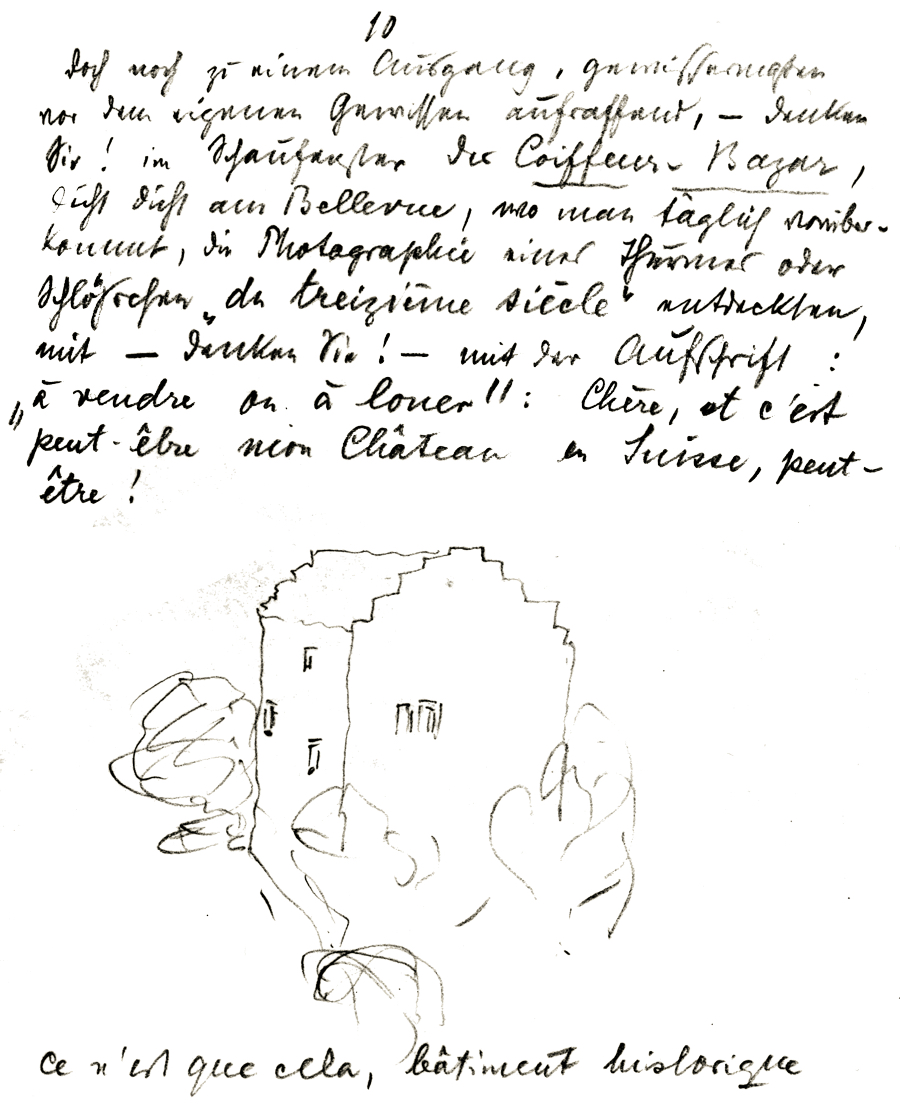 10
doch noch zu einem Ausgang, gewissermaßen
vor dem eigenen Gewissen aufraffend, – denken
Sie! im Schaufenster des Coiffeur-Bazar,
dicht dicht am Bellevue, wo man täglich vorüber-
kommt, die Photographie eines Thurmes oder
Schlößchen „du treizième siècle" entdeckten,
mit – denken Sie! – mit der Aufschrift :
„à vendre ou à louer": Chère, et c'est
peut-être mon Château en Suisse, peut-
être!
ce n'est que cela, bâtiment historique